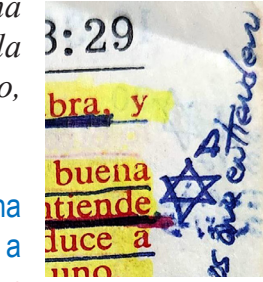 na
la
o,
na
a
3:29
bra, y
buena
tiende
duce a
uno
es que entienden